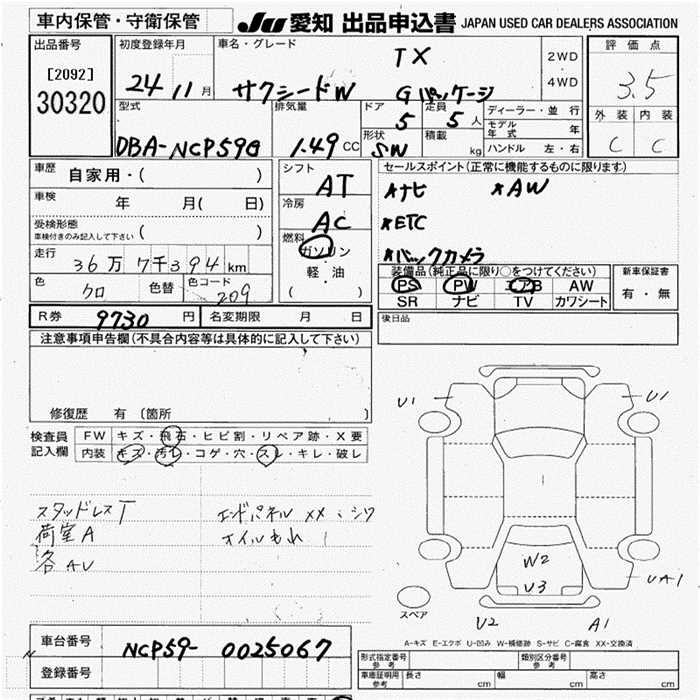 車内保管・守衛保管 JU 愛知 出品申込書 JAPAN USED CAR DEALERS ASSOCIATION
出品番号 初度登録年月 車名・グレード TX 2WD 評価点
[2092] 24 11月 サクシードW Gパッケージ 4WD 3.5
30320 型式 排気量 ドア 定員 ディーラー・並行 外装 内装
DBA-NCP59G 1.49 CC 5 5人 モデル年式 年 C C
形状 SW 積載 kg ハンドル 左・右
車歴 自家用・( ) シフト AT セールスポイント(正常に機能するものに限ります)
車検 年 月( 日) 冷房 AC *ナビ *AW
受検形態 ( ) *ETC
車検付きのみ記入して下さい
燃料 ガソリン *バックカメラ
走行 36万7千394km 軽・油 装備品(純正品に限り○をつけてください) 新車保証書
色 クロ 色替 色コード 209 ( ) PS PW エアB AW 有・無
SR ナビ TV カワシート
R券 9730円 名変期限 月 日 後日品
注意事項申告欄(不具合内容等は具体的に記入して下さい)
修復歴 有 〔箇所 〕
検査員 FW キズ・飛石・ヒビ割・リペア跡・X要
記入欄 内装 キズ・汚レ・コゲ・穴・スレ・キレ・破レ
U1 U1
スタッドレスT エンドパネル XX、シワ
荷室A オイルもれ
各AU
W2
U3 UA1
スペア
U2 A1
A-キズ E-エクボ U-凹み W-補修跡 S-サビ C-腐食 XX-交換済
車台番号 NCP59-0025067
登録番号
形式指定番号 参考 類別区分番号 参考
車庫証明用 参考 長さ cm 幅 cm 高さ cm